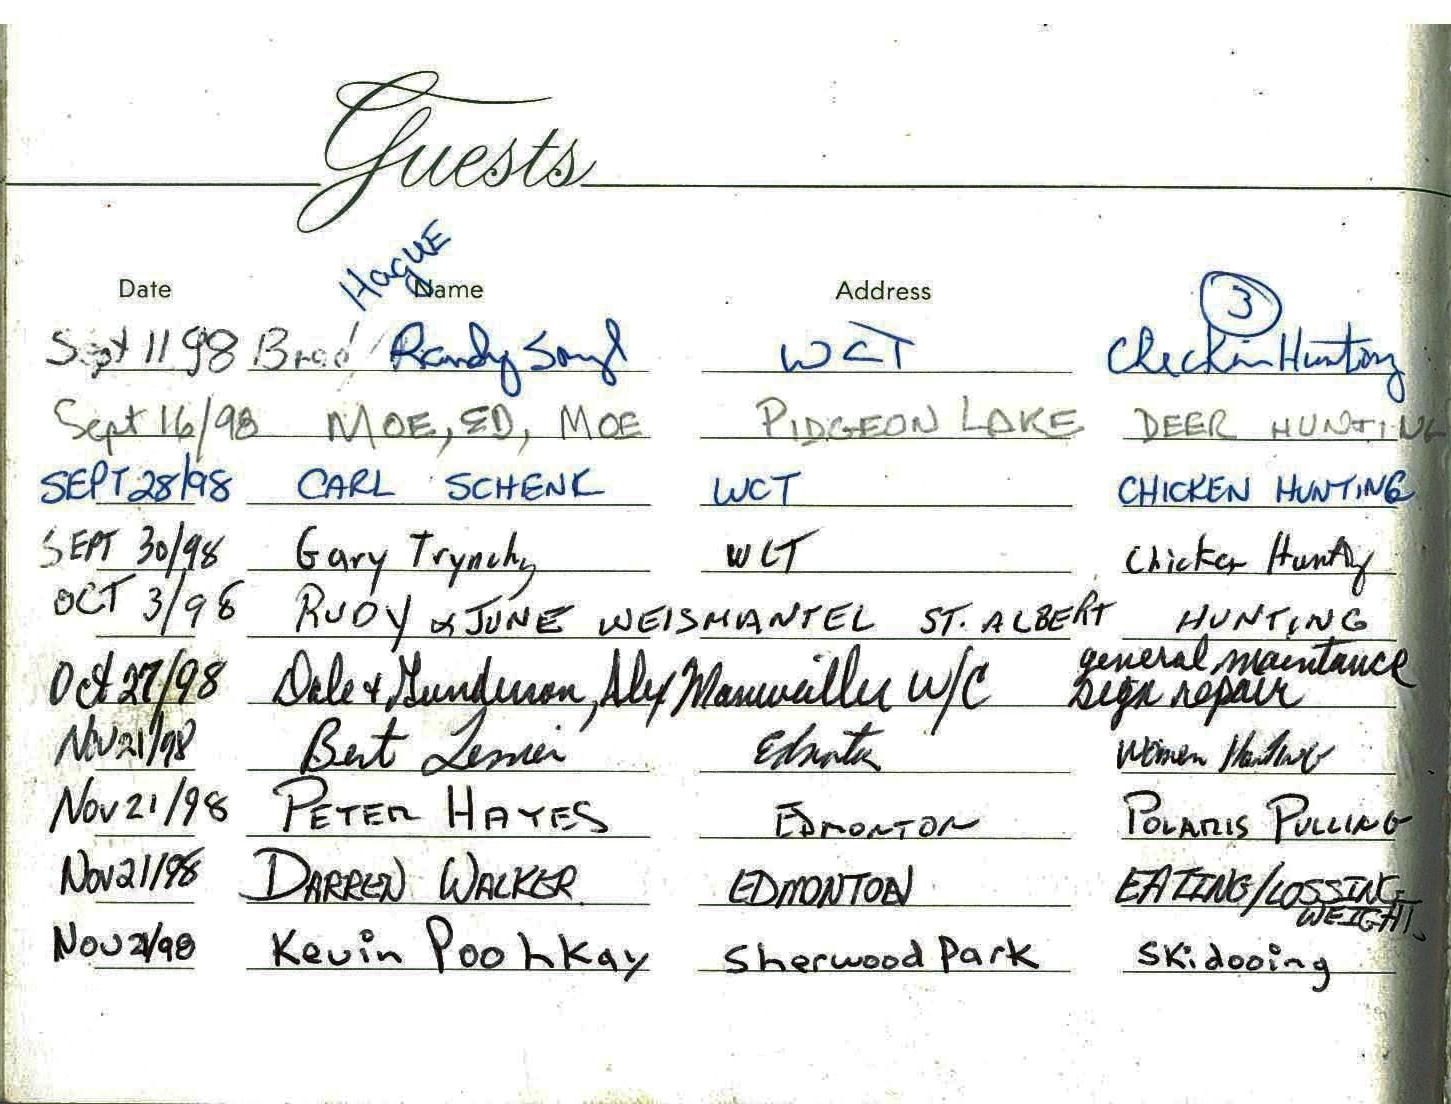 Guests
Hague
Date Name Address
3
Sept 11 98 Brad / Randy WCT Checkin Hunting
Sept 16/98 MOE, ED, MOE PIDGEON LAKE DEER HUNTING
SEPT 28/98 CARL SCHENK WCT CHICKEN HUNTING
SEPT 30/98 Gary Trynchy WCT Chicken Hunting
OCT 3/98 RUDY & JUNE WEISMANTEL ST. ALBERT HUNTING
general maintance
Oct 27/98 Dale + Gunderson, Alex Manweiller W/C Sign repair
Nov 21/98 Bert Edmonton Women Hunting
Nov 21/98 PETER HAYES EDMONTON POLARIS PULLING
Nov 21/98 DARREN WALKER EDMONTON EATING/LOSSING
WEIGHT.
Nov 21/98 Kevin Poohkay Sherwood Park Skidooing